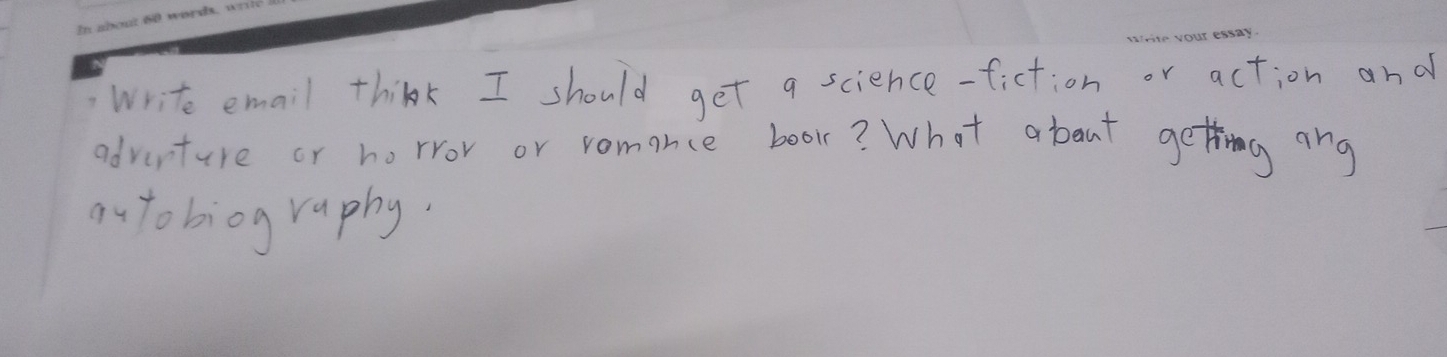 In about 60 words, write an
Write your essay.
Write email think I should get a science-fiction or action and
adventure or horror or romance book? What about getting ang
autobiography.